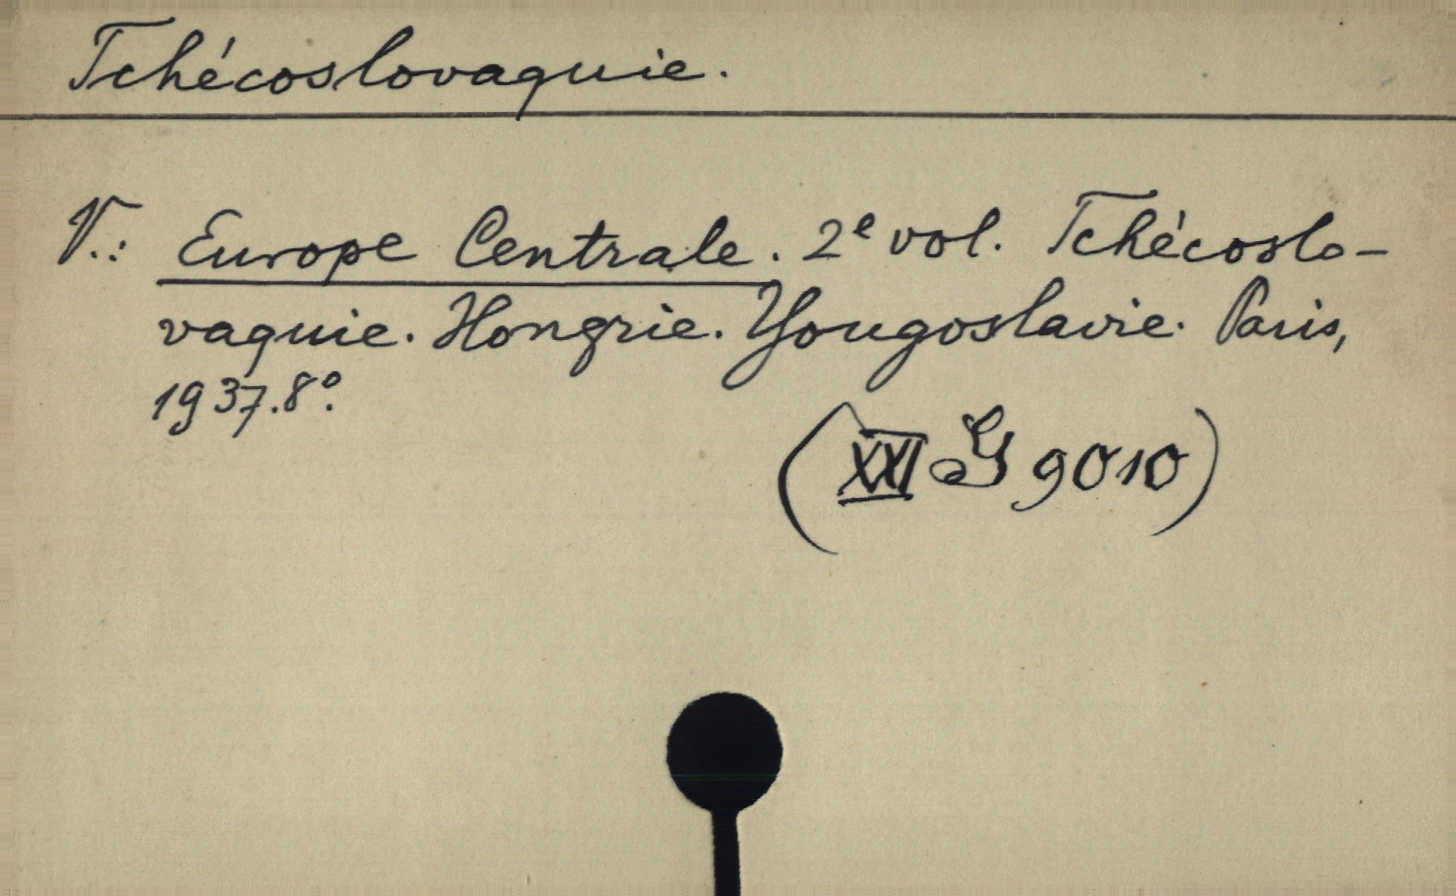 Tchécoslovaquie.
V.: Europe Centrale. 2e vol. Tchécoslo-
vaquie. Hongrie. Yougoslavie. Paris,
1937. 8°.
(XXI G 9010)